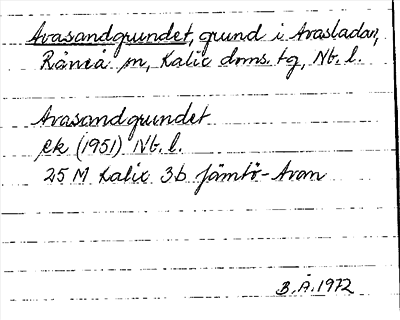 Avasandgrundet, grund i Avasladan,
Råneå sn, Kalix doms. tg, Nb. l.
Avasandgrundet
Ek (1951) Nb. l.
25 M Kalix 3b Jämtö-Avan
B.Å.1972